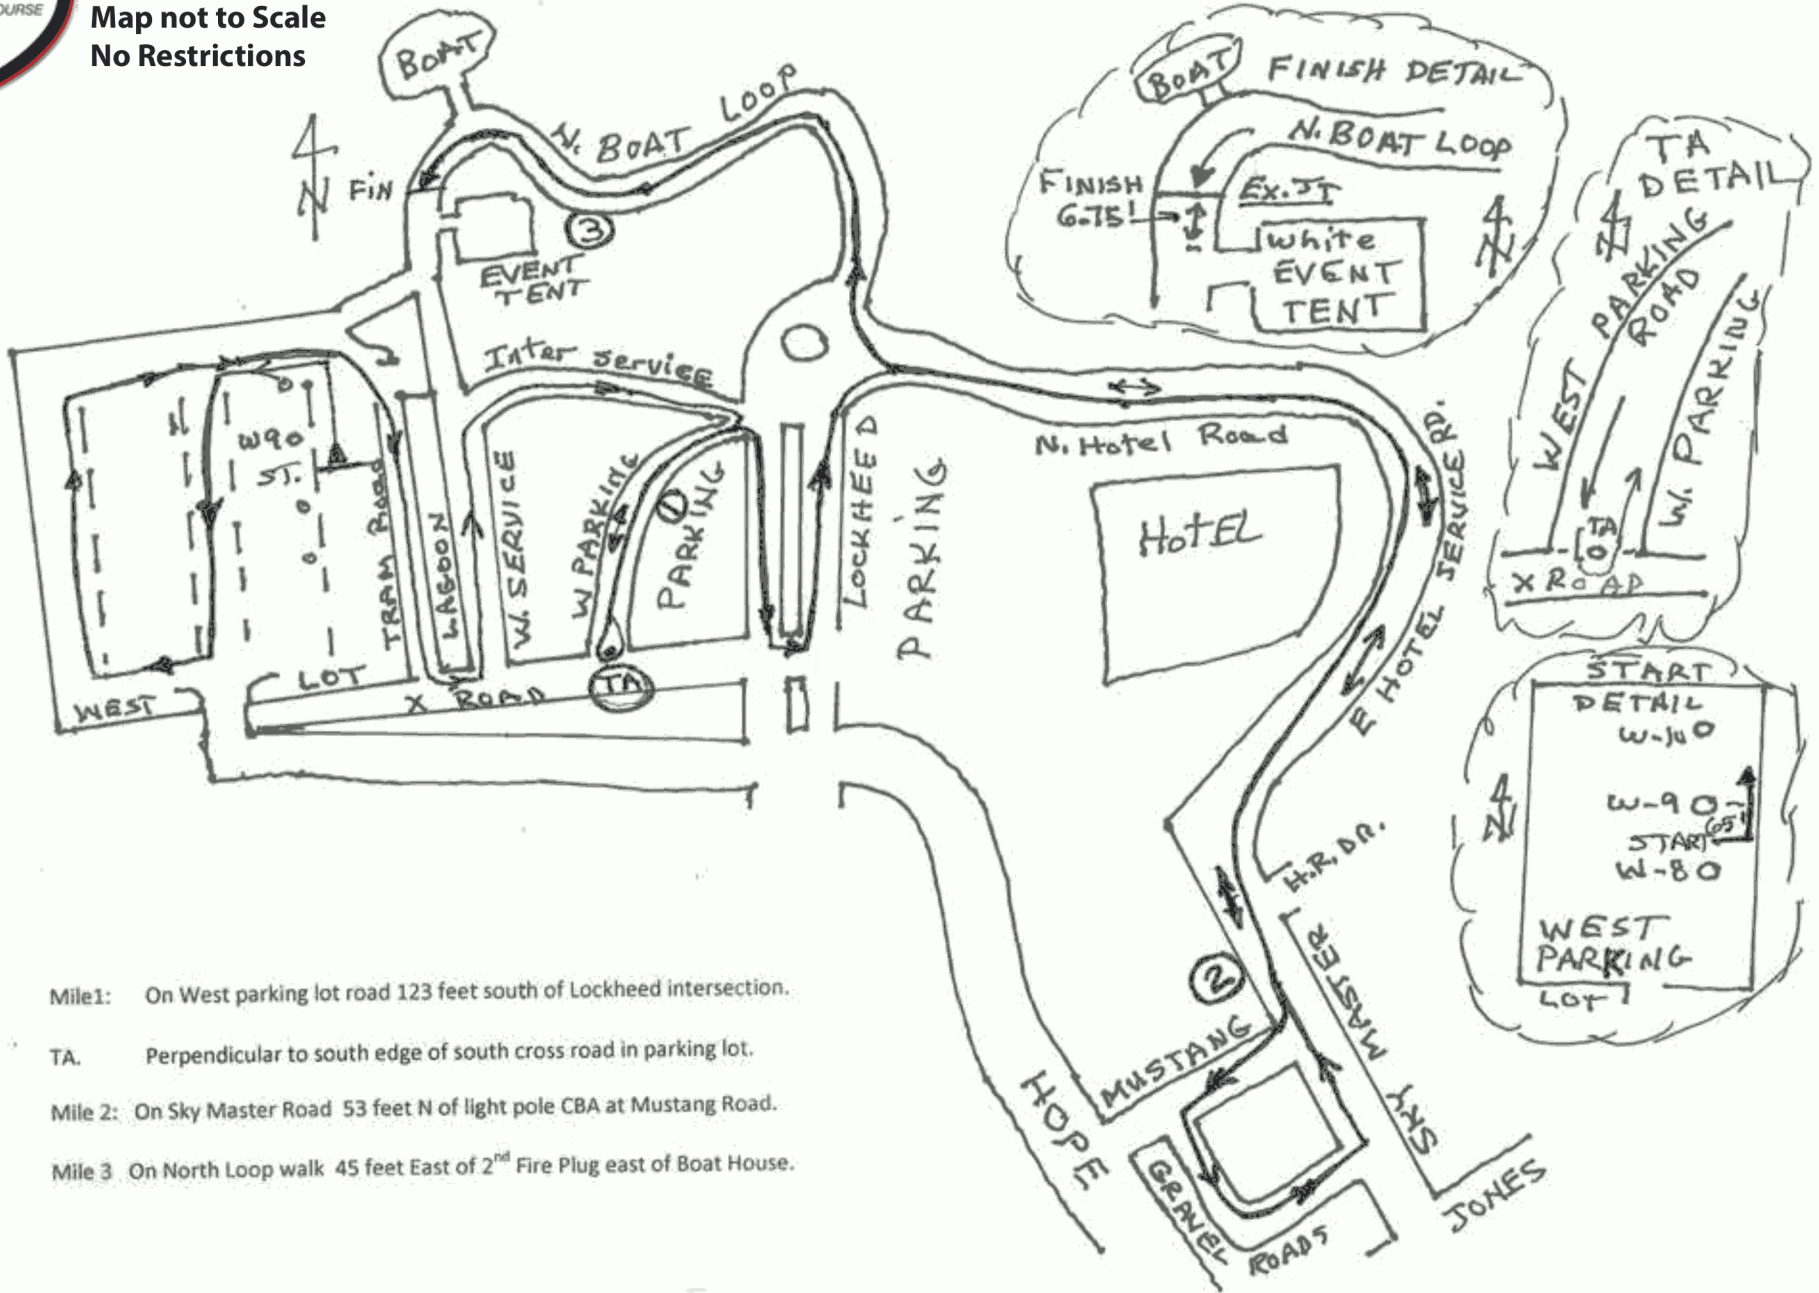 OURSE
Map not to Scale
No Restrictions
BOAT
N. BOAT LOOP
N
FIN
3
EVENT
TENT
Inter Service
W90
ST.
TRAM ROAD
LAGOON
W. SERVICE
W PARKING
1
PARKING
LOCKHEED
PARKING
N. Hotel Road
HOTEL
E HOTEL SERVICE RD.
WEST
LOT
X ROAD
TA
H.R. DR.
2
MASTER
SKY
MUSTANG
HOPE
GRAVEL
ROADS
JONES
BOAT
FINISH DETAIL
N. BOAT LOOP
FINISH
6.75'
EX. JT
N
White
EVENT
TENT
TA
DETAIL
N
WEST PARKING
ROAD
W. PARKING
TA
X ROAD
START
DETAIL
W-10 O
N
W-9 O
65'
START
W-8 O
WEST
PARKING
LOT
Mile1: On West parking lot road 123 feet south of Lockheed intersection.
TA. Perpendicular to south edge of south cross road in parking lot.
Mile 2: On Sky Master Road 53 feet N of light pole CBA at Mustang Road.
Mile 3 On North Loop walk 45 feet East of 2nd Fire Plug east of Boat House.